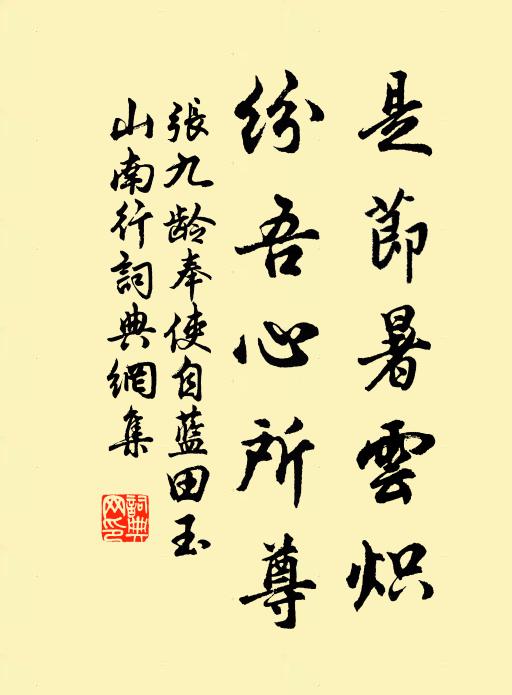 是節暑雲炽
紛吾心所尊
張九龄奉使自藍田玉
山南行詞典網集
詞典網印